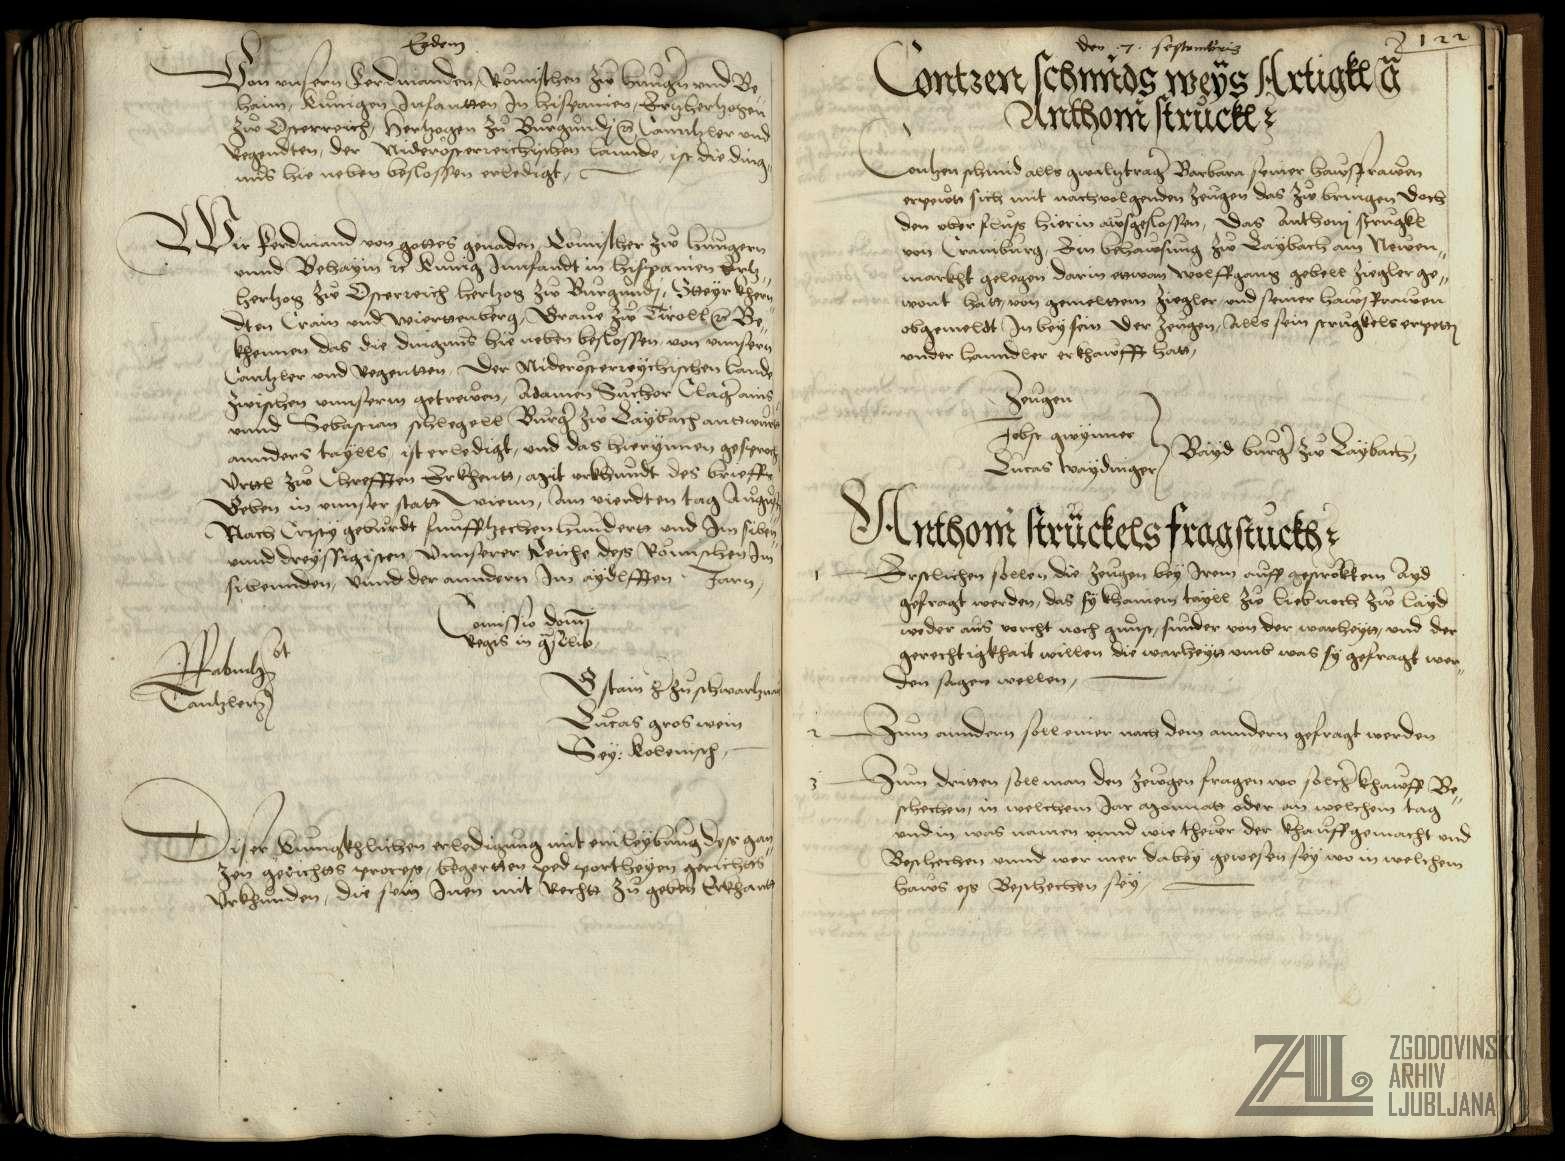 Eodem
Von unsern Ferdinanden, Römischen zw hungern und Be=
haim, Künigen Infantten In hispanien, Ertzhertzogen
zw Österreich, Hertzogen zu Burgundj ec Canntzler und
Regendten, der Niderösterreichischen lannde, ist die ding=
nus hie neben beslossen erledigt,
Wir Ferdinand von gottes genaden, Römischer zw hungern
unnd Behaym ec Künig Innfandt in hispanien Ertz=
hertzog zw Österreich hertzog zw Burgundj, Steyr khern
dten Crain und wierttenberg, Graue zw Tiroll ec Be=
khennen das die dingnus hie neben beslossen, von unnsern
Cantzler und Regentten, Der Niderösterreychischen lande
zwischen unnserm getrewen, Adamen Suchor Clager ains
unnd Sebastian schlegell Burger zw Laybach antwurter
annders taylls, ist erledigt, und das hierynnen gesprochen
Urttl zw Chrefften Erkhentt, mit urkhundt des brieffs
Geben in unnser statt Wienn, Am vierdten tag Augusti
Nach Cristy geburdt funfftzechenhundertt und Im siben=
unnd dreyssigisten Unnserer Reiche des Römischen Im
sibennden, Unnd der anndern Im aydlfften Jarn,
Comissio domini
Regis in
Cantzler
G stain H zu schwartznaw
Lucas groswein
Diser Kungkhlichen erledigung mit einleybung des gan
zen gerichtts process, begertten ped partheyen gerichtts=
Urkhunden, die sein Inen mit Recht zu geben Erkhantt
122
den .7. septembris
Contzen schmids weys Artigkl
Anthoni strückl
Contzen schmid alls gwalttrager Barbara seiner hawsfrawen
erpewtt sich mit nachvolgenden zeugen das zw bringen Doch
den uberfluss hierin awsgeslossen, Das Anthonj strugkl
von Crainburg, Ein behawsung zw Laybach am Newen=
markht gelegen darin ettwan Wolffgang gebell ziegler ge=
wont hatt, von gemelttem ziegler und seiner hawsfrawen
obgemeldt In beysein der zeugen, Alls sein strugkels erpetten
under hanndler erkhawfft hatt,
Zeugen
Jobst gwynner
Lucas waydinger
Bayd burger zw Laybach,
Anthoni strückels fragstuckh
1 Erstlichen sollen die zeugen bey Irem auff gestrektem Ayd
gefragt werden, das sy khainem tayll zw lieb noch zw layd
weder aus vorcht noch gunst, sunder von der warheytt, und der
gerechtigkhait willen die warheytt umb was sy gefragt wer=
den sagen wellen,
2 Zum anndern soll einer nach dem anndern gefragt werden
3 Zum dritten soll man den zewgen fragen wo solcher khawff Be=
schechen, in welchem Jar monatt oder an welchem tag
und in was namen unnd wie thewr der khauff gemacht und
Beschechen unnd wer mer dabey gewesen sey wo in welchem
haws es Beschechen sey,
ZAL
ZGODOVINSKI
ARHIV
LJUBLJANA